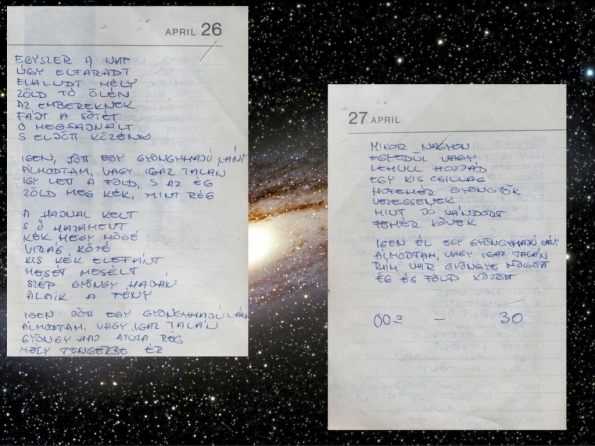 APRIL 26
EGYSZER A NAP
ÚGY ELFÁRADT
ELALUDT MÉLY
ZÖLD TÓ ÖLÉN
AZ EMBEREKNEK
FÁJT A SÖTÉT
Ő MEGSAJNÁLT
S ELJÖTT KÖZÉNK
IGEN, JÖTT EGY GYÖNGYHAJÚ LÁNY
ÁLMODTAM, VAGY IGAZ TALÁN
ÍGY LETT A FÖLD, S AZ ÉG
ZÖLD MEG KÉK, MINT RÉG
A HAJNAL KELT
S Ő HAZAMENT
KÉK HEGY MÖGÉ
VIRÁG KÖZÉ
KIS KÉK ELEFÁNT
MESÉT MESÉLT
SZÉP GYÖNGY HAJÁN
ALAIK A FÉNY
IGEN JÖTT EGY GYÖNGYHAJÚ LÁN
ÁLMODTAM, VAGY IGAZ TALÁN
GYÖNGY HAJ RÉG
MÉLY TENGERBE ÉR
27 APRIL
MIKOR NAGYON
EGYEDÜL VAGY
LEHULL HOZZÁD
EGY KIS CSILLAG
HÓFEHÉR GYÖNGYÖK
VEZESSENEK
MINT JÓ VÁNDORT
FEHÉR KÖVEK
IGEN ÉL EGY GYÖNGYHAJÚ LÁNY
ÁLMODTAM, VAGY IGAZ TALÁN
RÁM VÁR GYÖNGYE MÖGÖTT
ÉG ÉS FÖLD KÖZÖTT
00 - 30